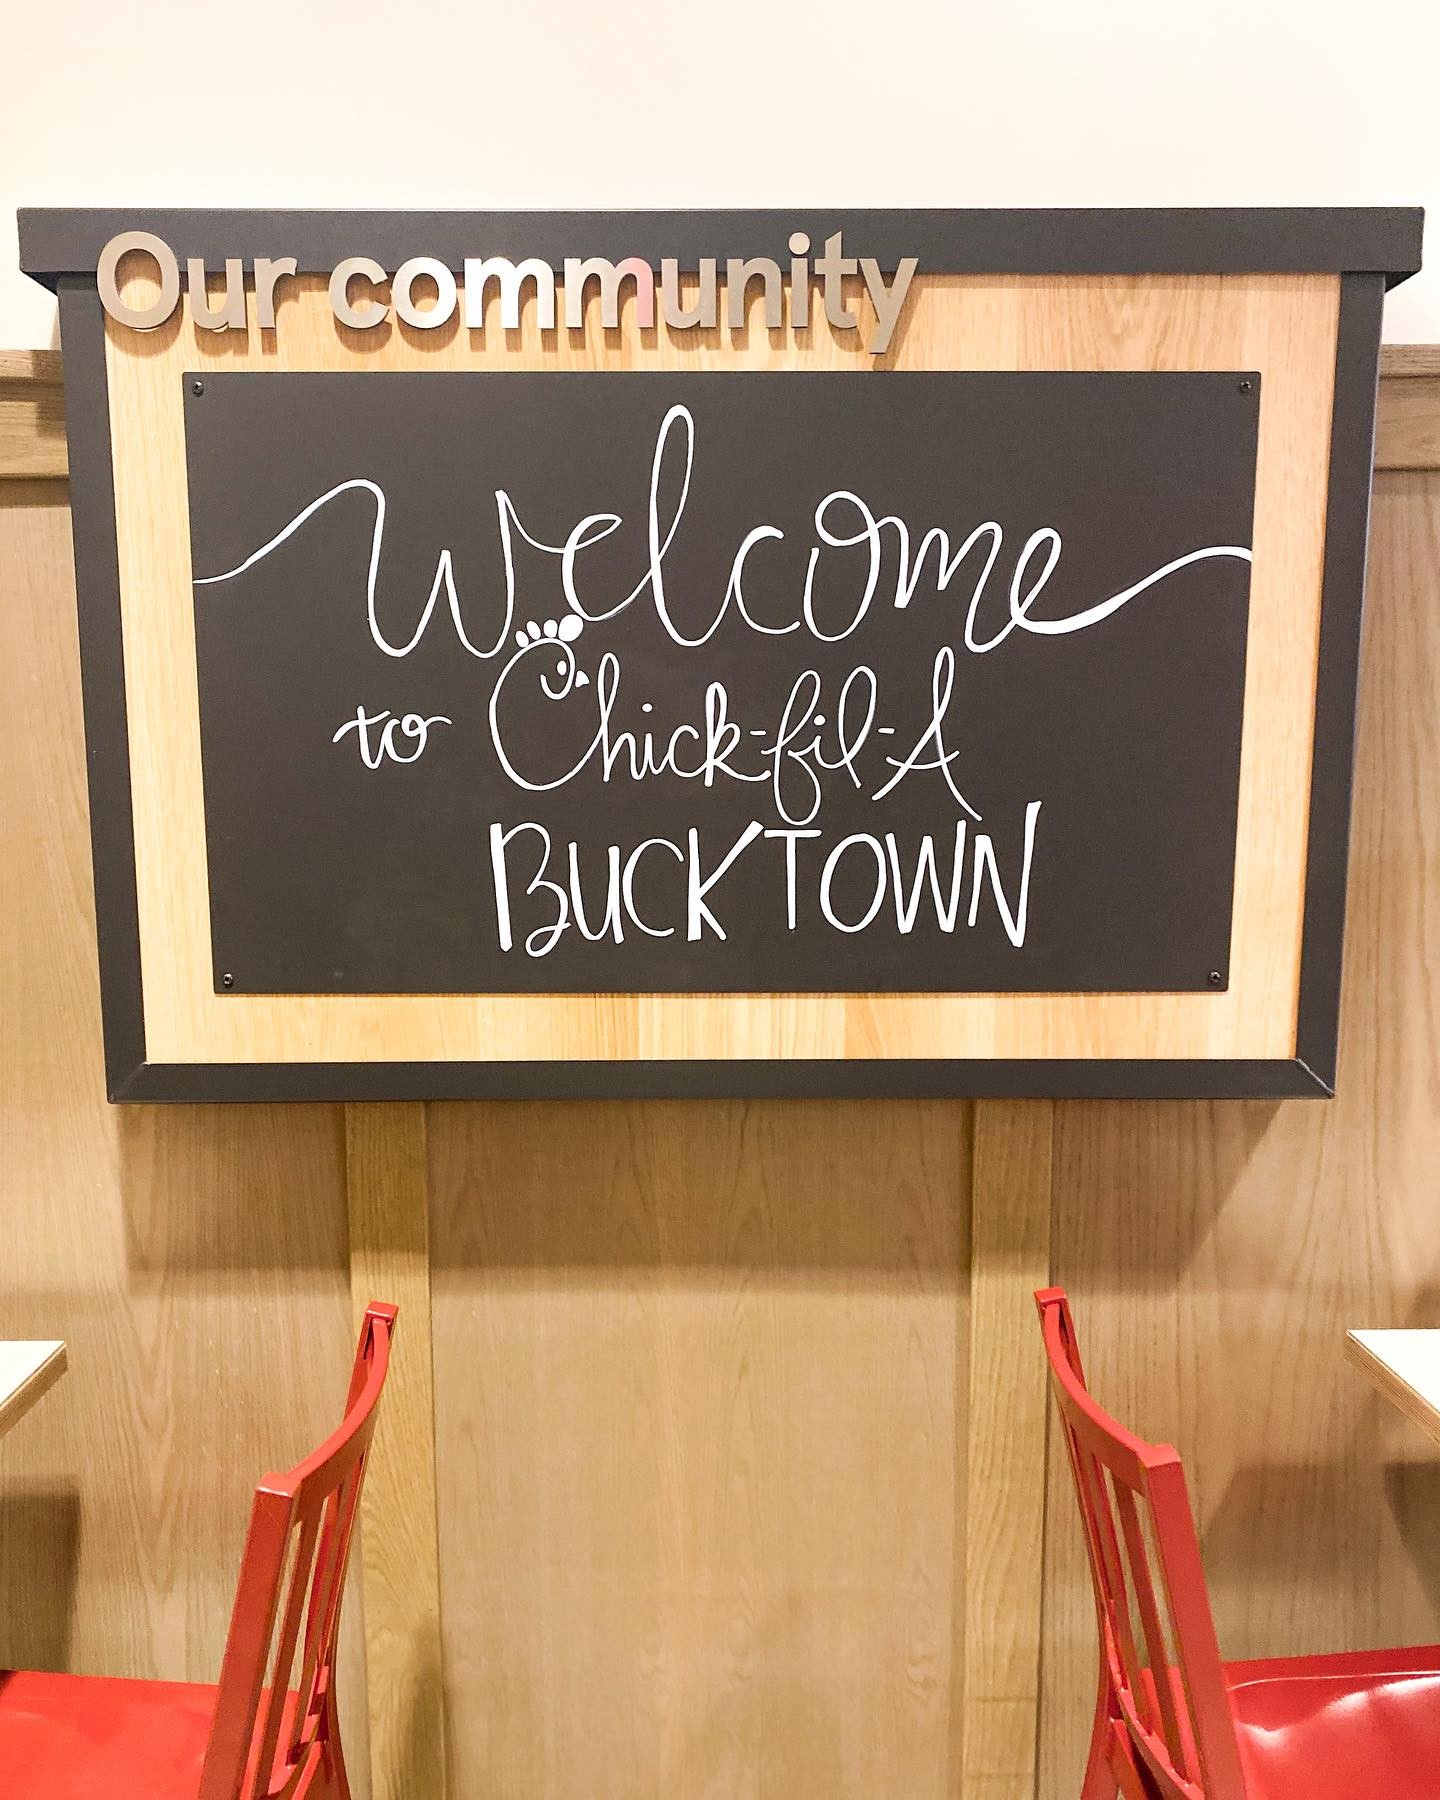 Our community
Welcome
to Chick-fil-A
BUCKTOWN